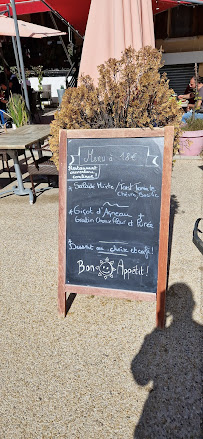 Menu à 18€
Restaurant
ouverture
continue!
* Salade Mixte / Tart Tomate
Chèvre, Basilic
* Gigot d'Agneau +
Gratin Choux fleur et Purée
* Dessert au choix et café!
Bon Appétit!